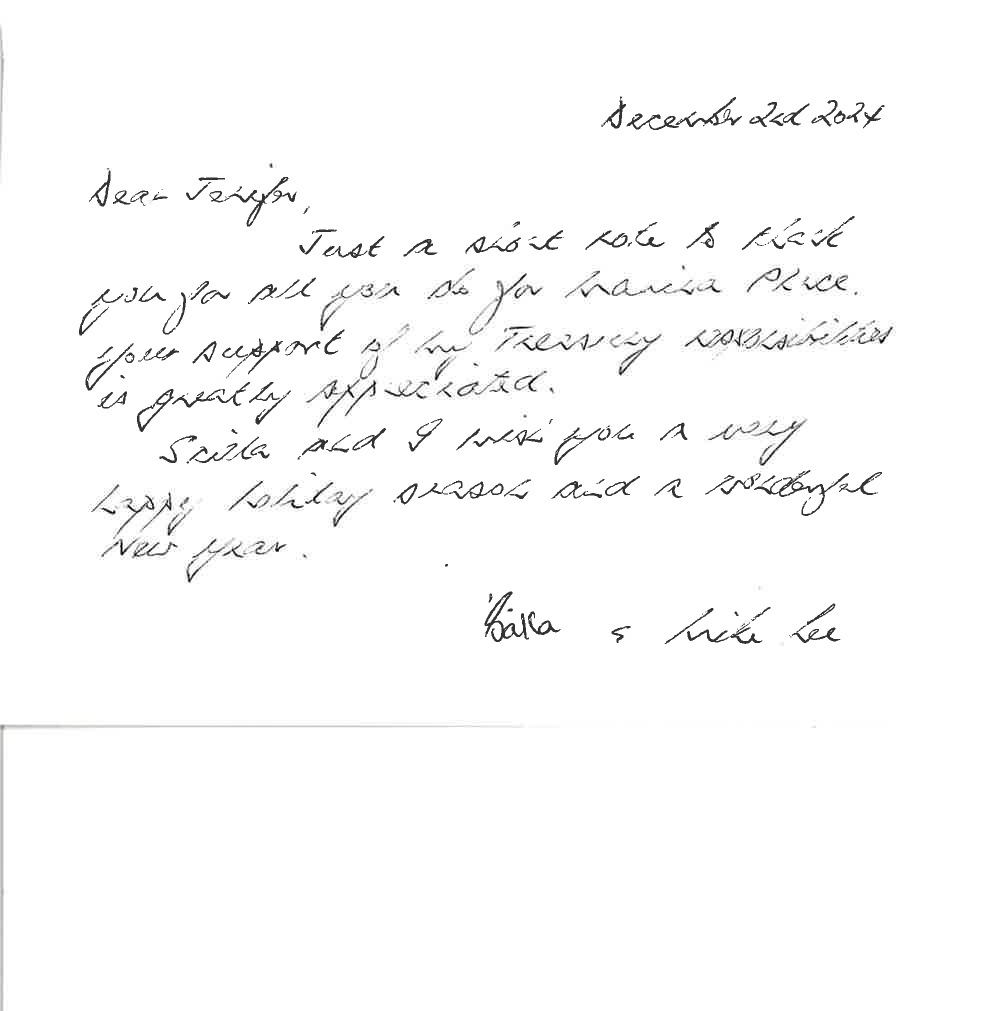 December 2nd 2024
Dear Jennifer,
Just a short note to thank
you for all you do for Marina Place.
Your support of my Treasury responsibilities
is greatly appreciated.
and I wish you a very
happy holiday season and a wonderful
New Year.
& Mike Lee